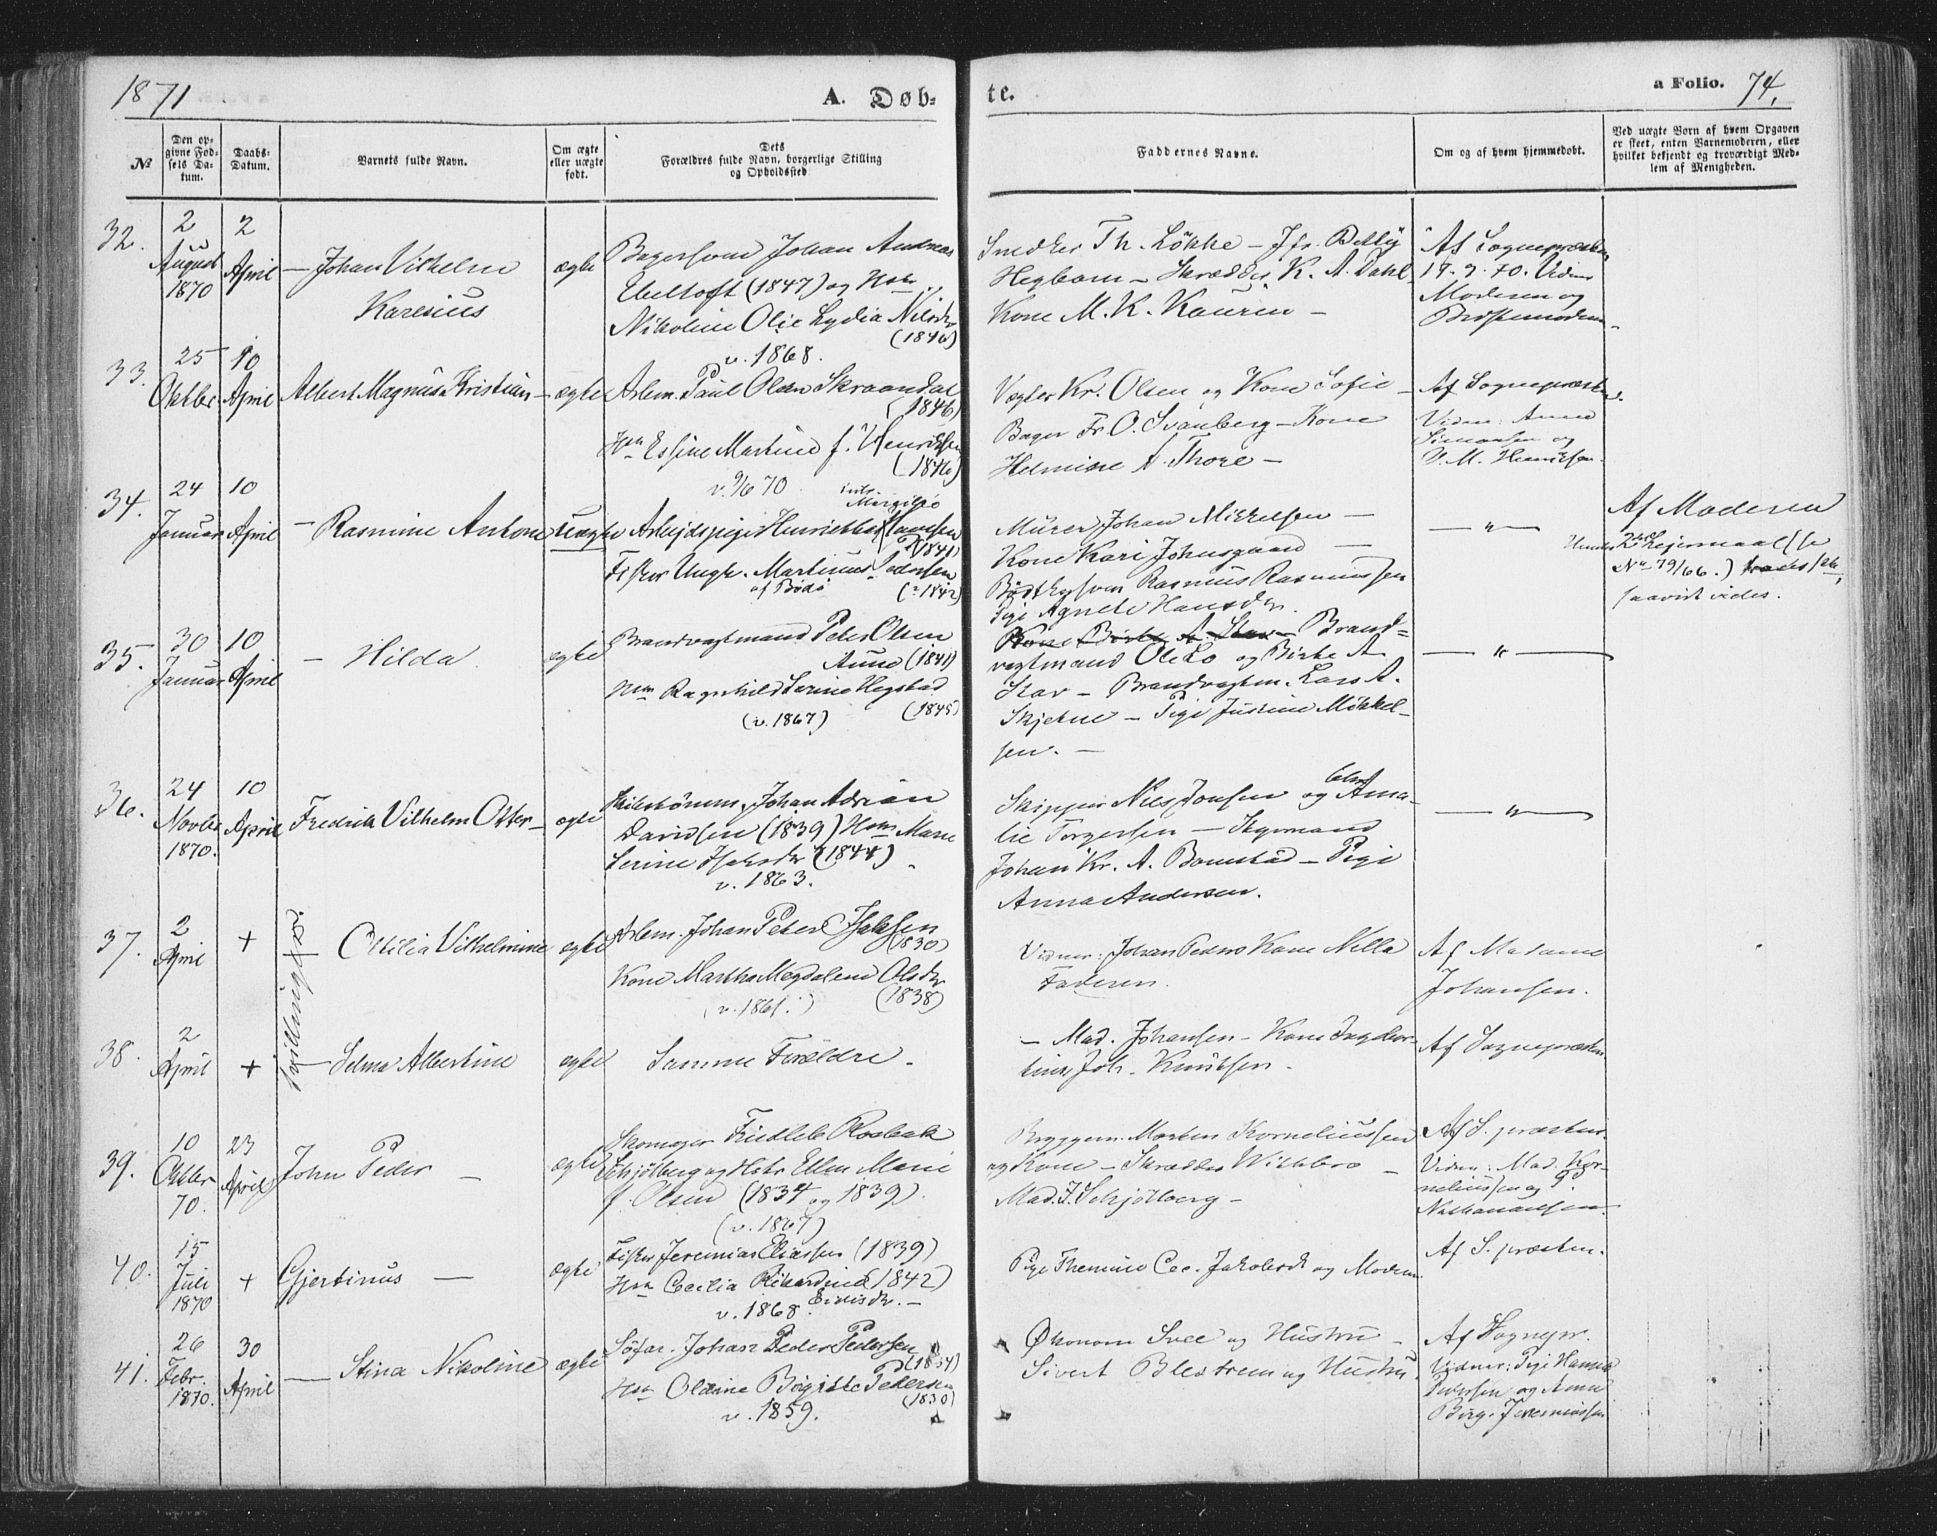 1871
A. Døb-
te.
a Folio. 74.
No
Den op-
givne Fød-
sels Da-
tum.
Daabs-
Datum.
Barnets fulde Navn.
Om ægte
eller uægte
født.
Dets
Forældres fulde Navn, borgerlige Stilling
og Opholdssted
Faddernes Navne.
Om og af hvem hjemmedøbt.
Ved uægte Børn af hvem Opgaven
er skeet, enten Barnemoderen, eller
hvilket bekjendt og troværdigt Med-
lem af Menigheden.
32.
2
August
1870
2
April
— Johan Vilhelm
Karesius
ægte
Bagersvend Johan Andreas
Ebeltoft (1847) og Hstr.
Nikoline Olie Lydia Nilsdr
(1846)
v. 1868.
Snedker Th. Løkke — Jfr. Betty
Hegbom — Skrædder K. A. Dahl
Kone M. K. Kaurin —
Af Sognepræsten
Moderen og
33.
25
Oktbr.
10
April
Albert Magnus Kristian —
ægte
Arbm. Paul Olsen Skraandal
(1846)
Hstr Essine Martine f. Henriksen
(1846)
v. 9/6 70
Vægter Kr. Olsen og Kone Sofie —
Bager Fr. O. Svanberg — Kone
Helmine A. Thore —
Af Sognepræsten.
Vidner: Anna
Simonsen og
34.
24
Januar
10
April
— Rasmine Antone
uægte
Arbejdspige Henriette
(1841)
Fisker Ungk. Martinus Pedersen
af Bodø
(1842)
Murer Johan Mikkelsen —
Kone Kari Johnsgaard —
Rasmus Rasmussen
Pige Agnete Hansdr.
— " —
Af Moderen
Hendes 2det Lejermaal (se
No 79/66.)
saavidt vides.
35.
30
Januar
10
April
— Hilda
ægte
Brandvagtmand Peter Olsen
Aune (1841)
Hstr Ragnhild Serine Hegstad
(1845)
(v. 1867)
Brand-
vagtmand Ole Lo og Birte A.
Stav — Brandvagtm. Lars A.
Skjetne — Pige Justine Mikkel-
sen. —
— " —
36.
24
Novbr
1870.
10
April
Fredrik Vilhelm Otter —
ægte
Johan Adrian
Davidsen (1839) Hstr Maren
Serine Isaksdr (1844)
v. 1863.
Skipper Nils Jonsen og Ama-
lie Torgersen —
Johan Kr. A. Bomstad — Pige
Anna Andersen.
— " —
37.
2
April
+
Ottilia Vilhelmine
ægte
Arbm. Johan Peter Isaksen
(1830)
Kone Martha Magdalena Olsdr
(1838)
(v. 1861.)
Vidner: Johan Peders Kone Nella
Faderen.
Af Madame
Johansen.
38.
2
April
+
— Selma Albertine
ægte
Samme Forældre —
— Mad. Johansen — Kone Ingebor
tine Joh. Knutsen —
Af Sognepræsten
39.
10
Oktbr
70.
23
April
John Peder —
ægte
Skomager Fridlele Rosbak
Schjølberg og Hstr Ellen Marie
f. Olsen (1834 og 1839).
(v. 1867)
Bryggem. Morten Korneliussen
og Kone — Skrædder Withbro —
Mad. J. Schjølberg —
Af S. præsten.
Vidner: Mad. Kor-
neliussen og J.
Nathanaelsen.
40.
15
Juli
1870
+
Gjertinus —
ægte
Fisker Jeremias Eliassen (1839)
Hstr Cecilia Rikardine (1842)
v. 1868.
Pige Themine Cec. Jakobsdr og Moderen.
Af S. præsten.
41.
26
Febr.
1870.
30
April
— Stina Nikoline
ægte
Søfar. Johan Peder Pedersen
(1834)
Hstr Oldine Birgitte Pedersen
(1830)
v. 1859.
Økonom Svee og Hustru —
Sivert Blestrem og Hustru.
Af Sognepr.
Vidner: Pige Hanna
Pedersen og Anne
Birg. Jeremiassen